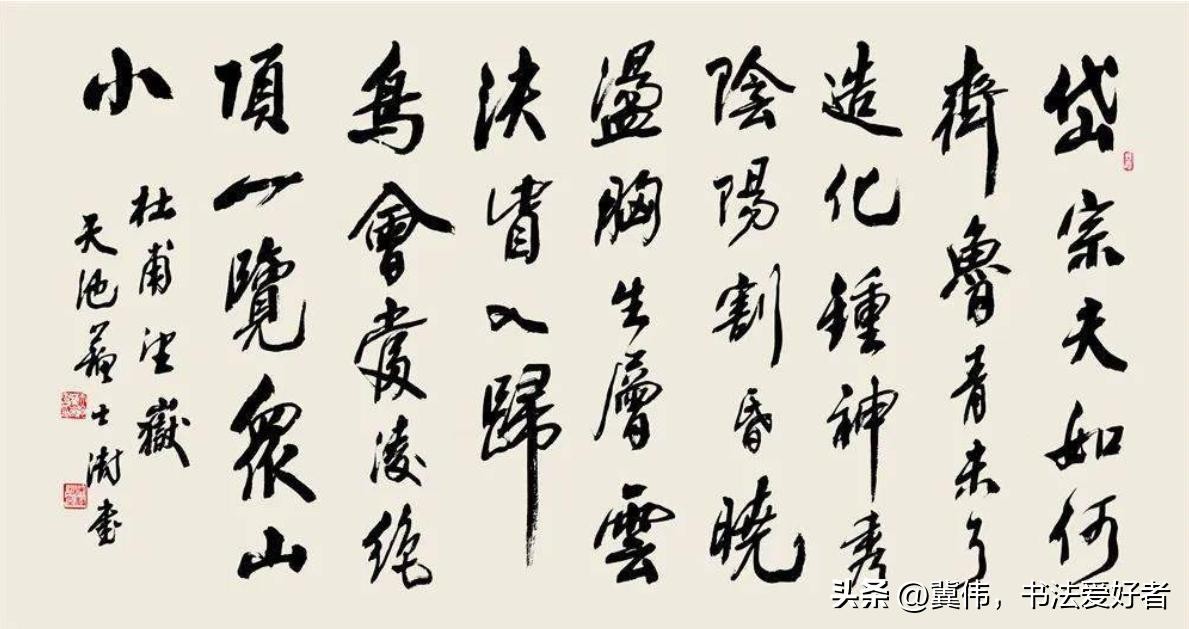 岱宗夫如何
齊魯青未了
造化鍾神秀
陰陽割昏曉
盪胸生層雲
決眥入歸
鳥會當凌絕
頂一覽衆山
小
杜甫望嶽
天池蘇士澍書
头条 @冀伟，书法爱好者